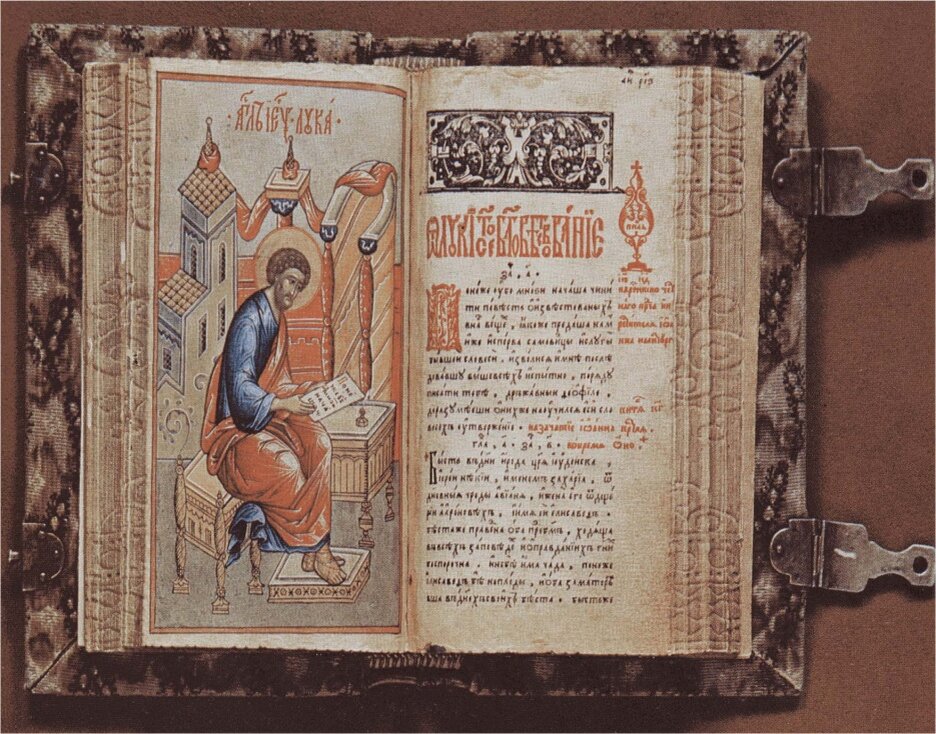 А҃ЛЪ ІЄѴ҃ ЛУКА
ѾЛУКИ СТОЕ БЛ҃ГОВѢСТВОВАНІЕ
за҃ , а҃ .
Понеже ѹбо мнѡзи начаша чини
ти повѣсть ѡизвѣстованыхъ
вна вещехъ , ꙗкоже предаша нам
иже исперва самовидцы ислугы
бывшеи словеси , изволися имнѣ послѣ
довавшу вышевсѣхъ испытно , поряду
писати тебѣ , державныи феофиле ,
даразумѣеши онихже научился еси сло
весѣхъ утвержение . назачатие іѡанна
гла , а҃ . за҃ , в҃ . вовремѧ ѻно .
Бысть вдни ирода цр҃ѧ іюдеиска ,
іереи нѣкіи , именемъ захаріа , ѿ
дневныѧ чреды авіанѧ , ижена его ѿдщере
и аароновѣхъ , иимѧ еи елисаведь .
бѣстаже праведна оба пребг҃мъ , ходѧща
вовсѣхъ заповѣдехъ иоправданіихъ гн҃и
беспорочна . инебѣ има чада , понеже
елисаведь бѣ неплоды , иоба заматорѣв
ша вднехъ своихъ бѣста . бысть же